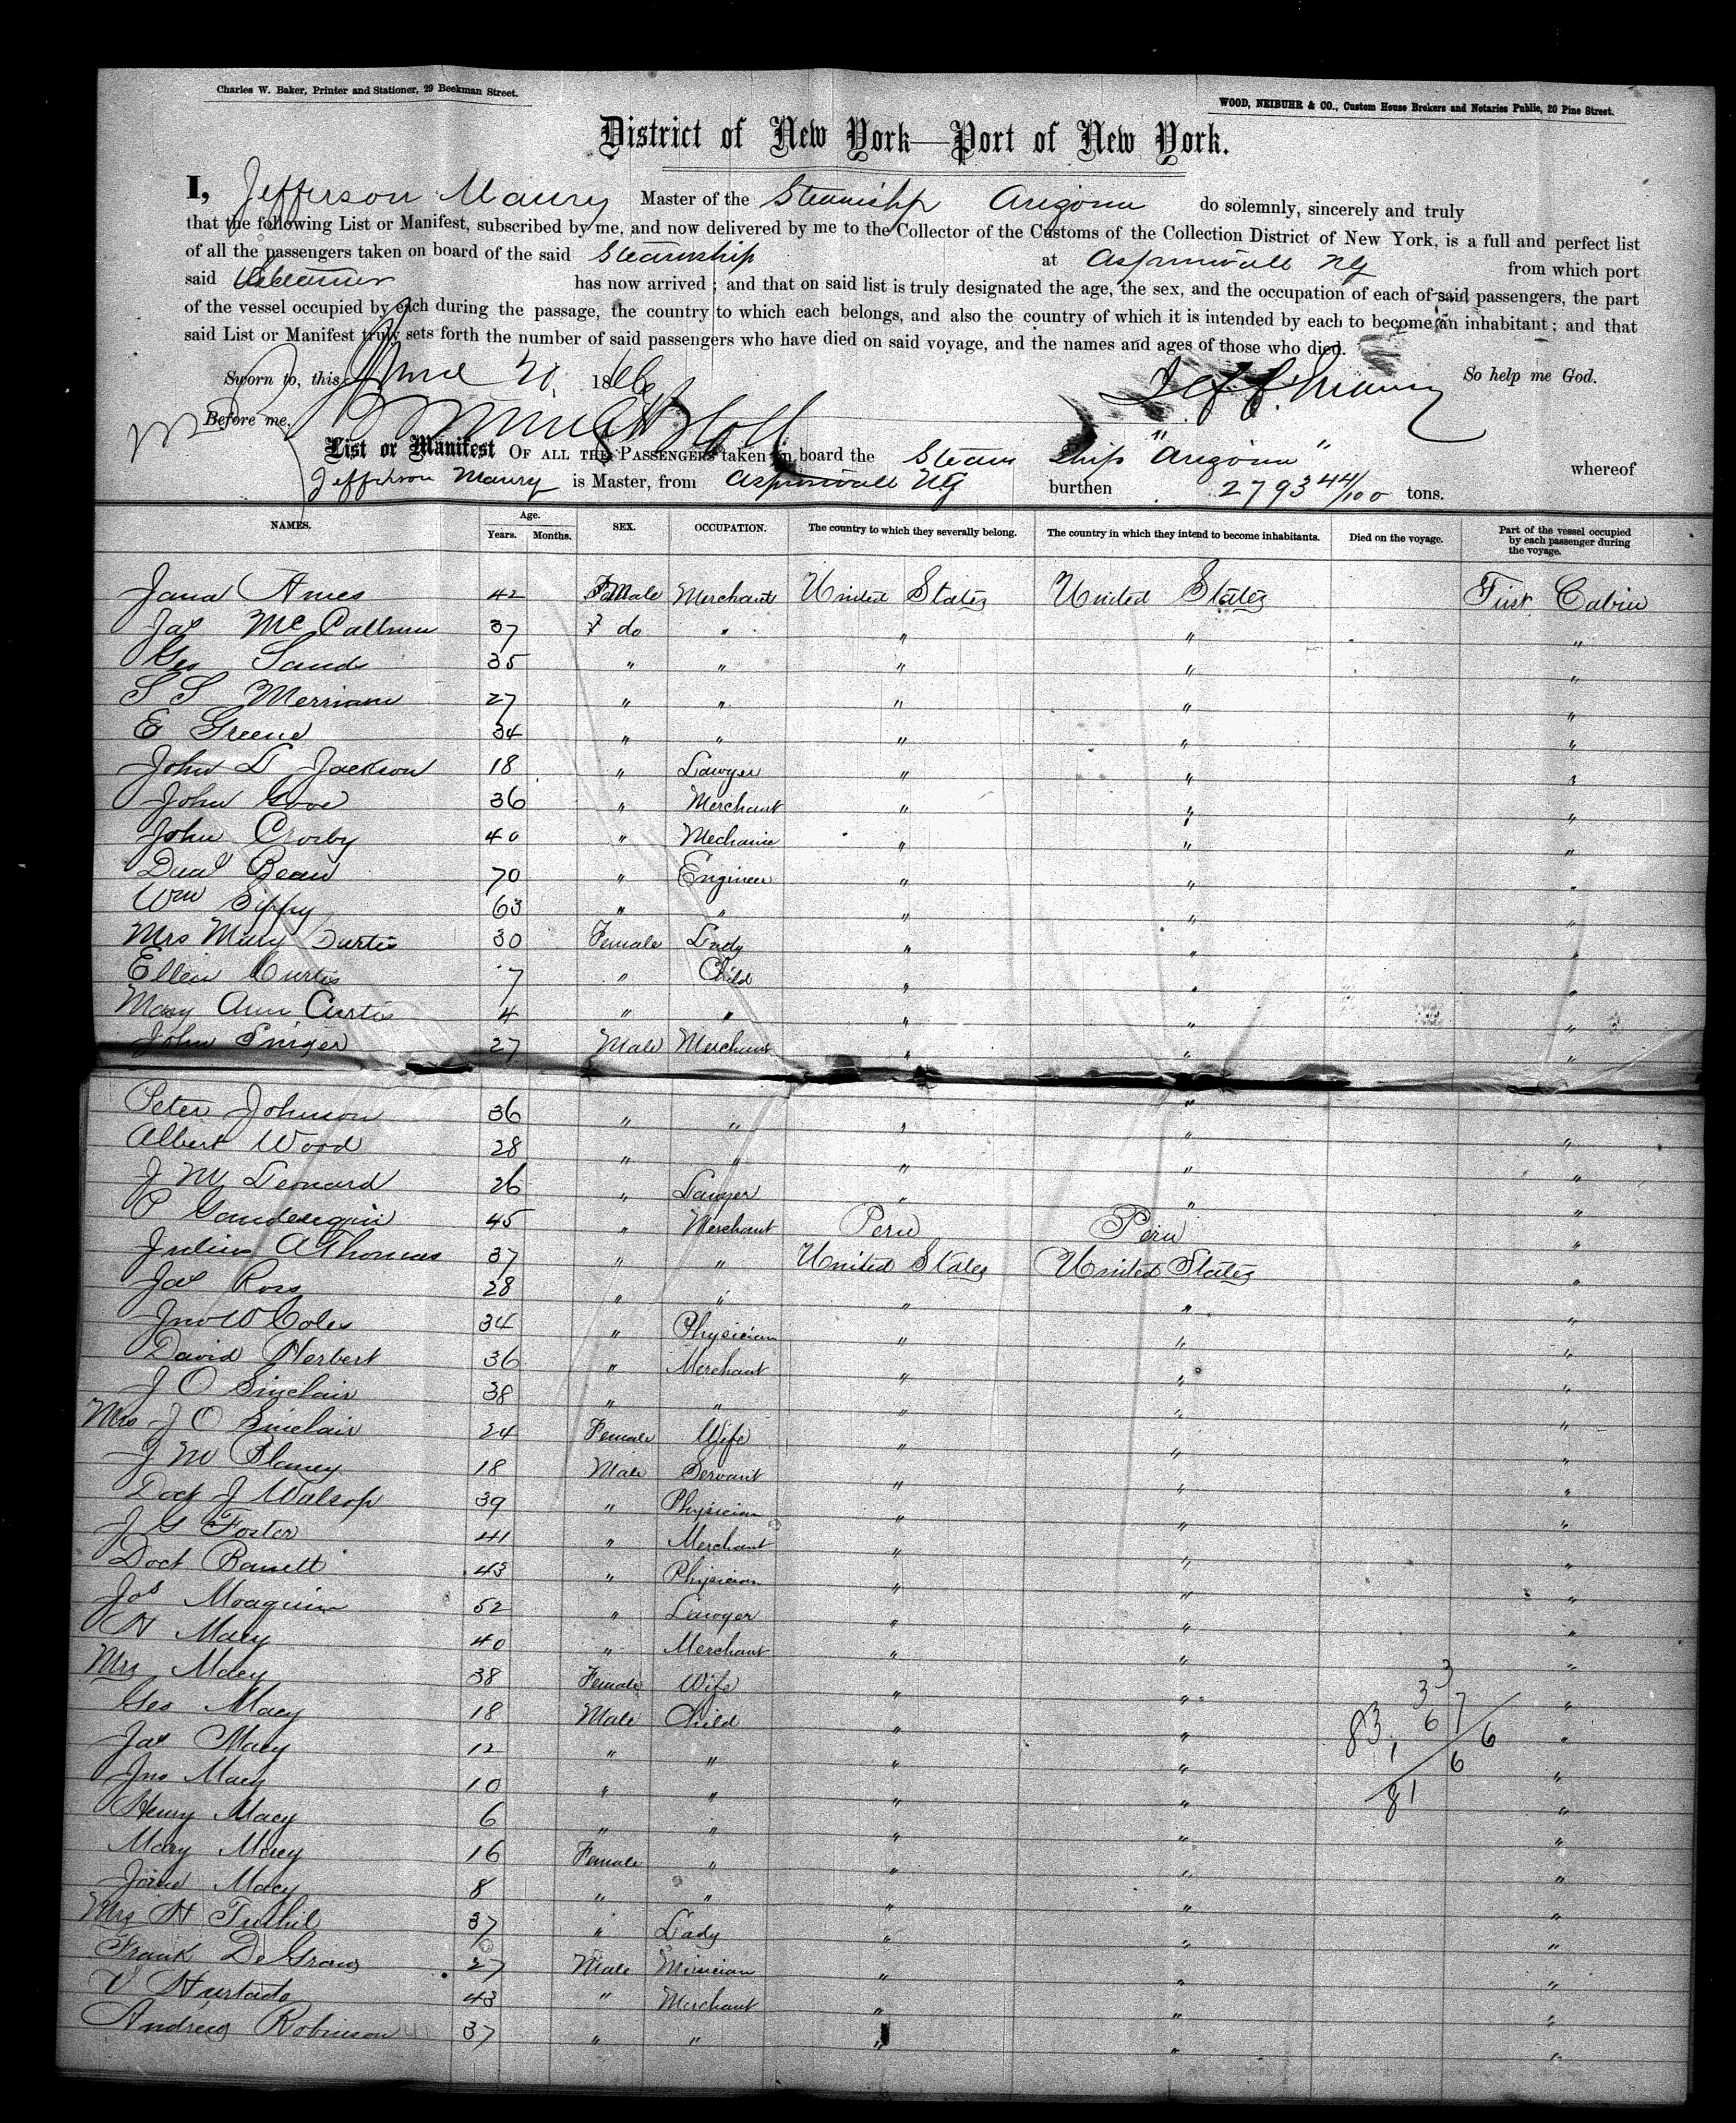 Charles W. Baker, Printer and Stationer, 29 Beekman Street.
WOOD, NEIBUHR & CO., Custom House Brokers and Notaries Public, 20 Pine Street.
District of New York—Port of New York.
I, Jefferson Maury Master of the Steamship Arizona do solemnly, sincerely and truly
that the following List or Manifest, subscribed by me, and now delivered by me to the Collector of the Customs of the Collection District of New York, is a full and perfect list
of all the passengers taken on board of the said Steamship at Aspinwall NG from which port
said has now arrived; and that on said list is truly designated the age, the sex, and the occupation of each of said passengers, the part
of the vessel occupied by each during the passage, the country to which each belongs, and also the country of which it is intended by each to become an inhabitant; and that
said List or Manifest truly sets forth the number of said passengers who have died on said voyage, and the names and ages of those who died.
Sworn to, this 1866 So help me God.
Before me, Jeff Maury
List or Manifest OF ALL THE PASSENGERS taken on board the Steam Ship "Arizona" whereof
Jefferson Maury is Master, from Aspinwall NG burthen 2793 44/100 tons.
NAMES. Age. Years. Months. SEX. OCCUPATION. The country to which they severally belong. The country in which they intend to become inhabitants. Died on the voyage. Part of the vessel occupied by each passenger during the voyage.
Ames 42 Male Merchant United States United States First Cabin
Jas McCallum 37 do " " " "
Geo Sand 35 " " " " "
S S Merriam 27 " " " " "
E Greene 34 " " " " "
John L Jackson 18 " Lawyer " " "
John Gove 36 " Merchant " " "
John Crosby 40 " Mechanic " " "
Danl Bean 70 " Engineer " " "
Wm Sippy 63 " " " " "
Mrs Mary Curtis 30 Female Lady " " "
Ellen Curtis 7 " Child " " "
Mary Ann Curtis 4 " " " " "
John Sniger 27 Male Merchant " " "
Peter Johnson 36 " " " " "
Albert Wood 28 " " " " "
J M Leonard 26 " Lawyer " " "
P 45 " Merchant Peru Peru "
Julius A Thomas 37 " " United States United States "
Jas Ross 28 " " " " "
Jno W Coles 34 " Physician " " "
David Herbert 36 " Merchant " " "
J O Sinclair 38 " " " " "
Mrs J O Sinclair 24 Female Wife " " "
J M Blaney 18 Male Servant " " "
Doct J Walsop 39 " Physician " " "
J G Foster 41 " Merchant " " "
Doct Barrett 43 " Physician " " "
Jos Moaguin 52 " Lawyer " " "
H Macy 40 " Merchant " " "
Mrs Macy 38 Female Wife " " "
Geo Macy 18 Male Child " " "
Jas Macy 12 " " " " "
Jno Macy 10 " " " " "
Henry Macy 6 " " " " "
Mary Macy 16 Female " " " "
Macy 8 " " " " "
Mrs H Tuthil 37 " Lady " " "
Frank DeGraw 27 Male Musician " " "
V Hurtado 43 " Merchant " " "
Andrew Robinson 37 " " " " "